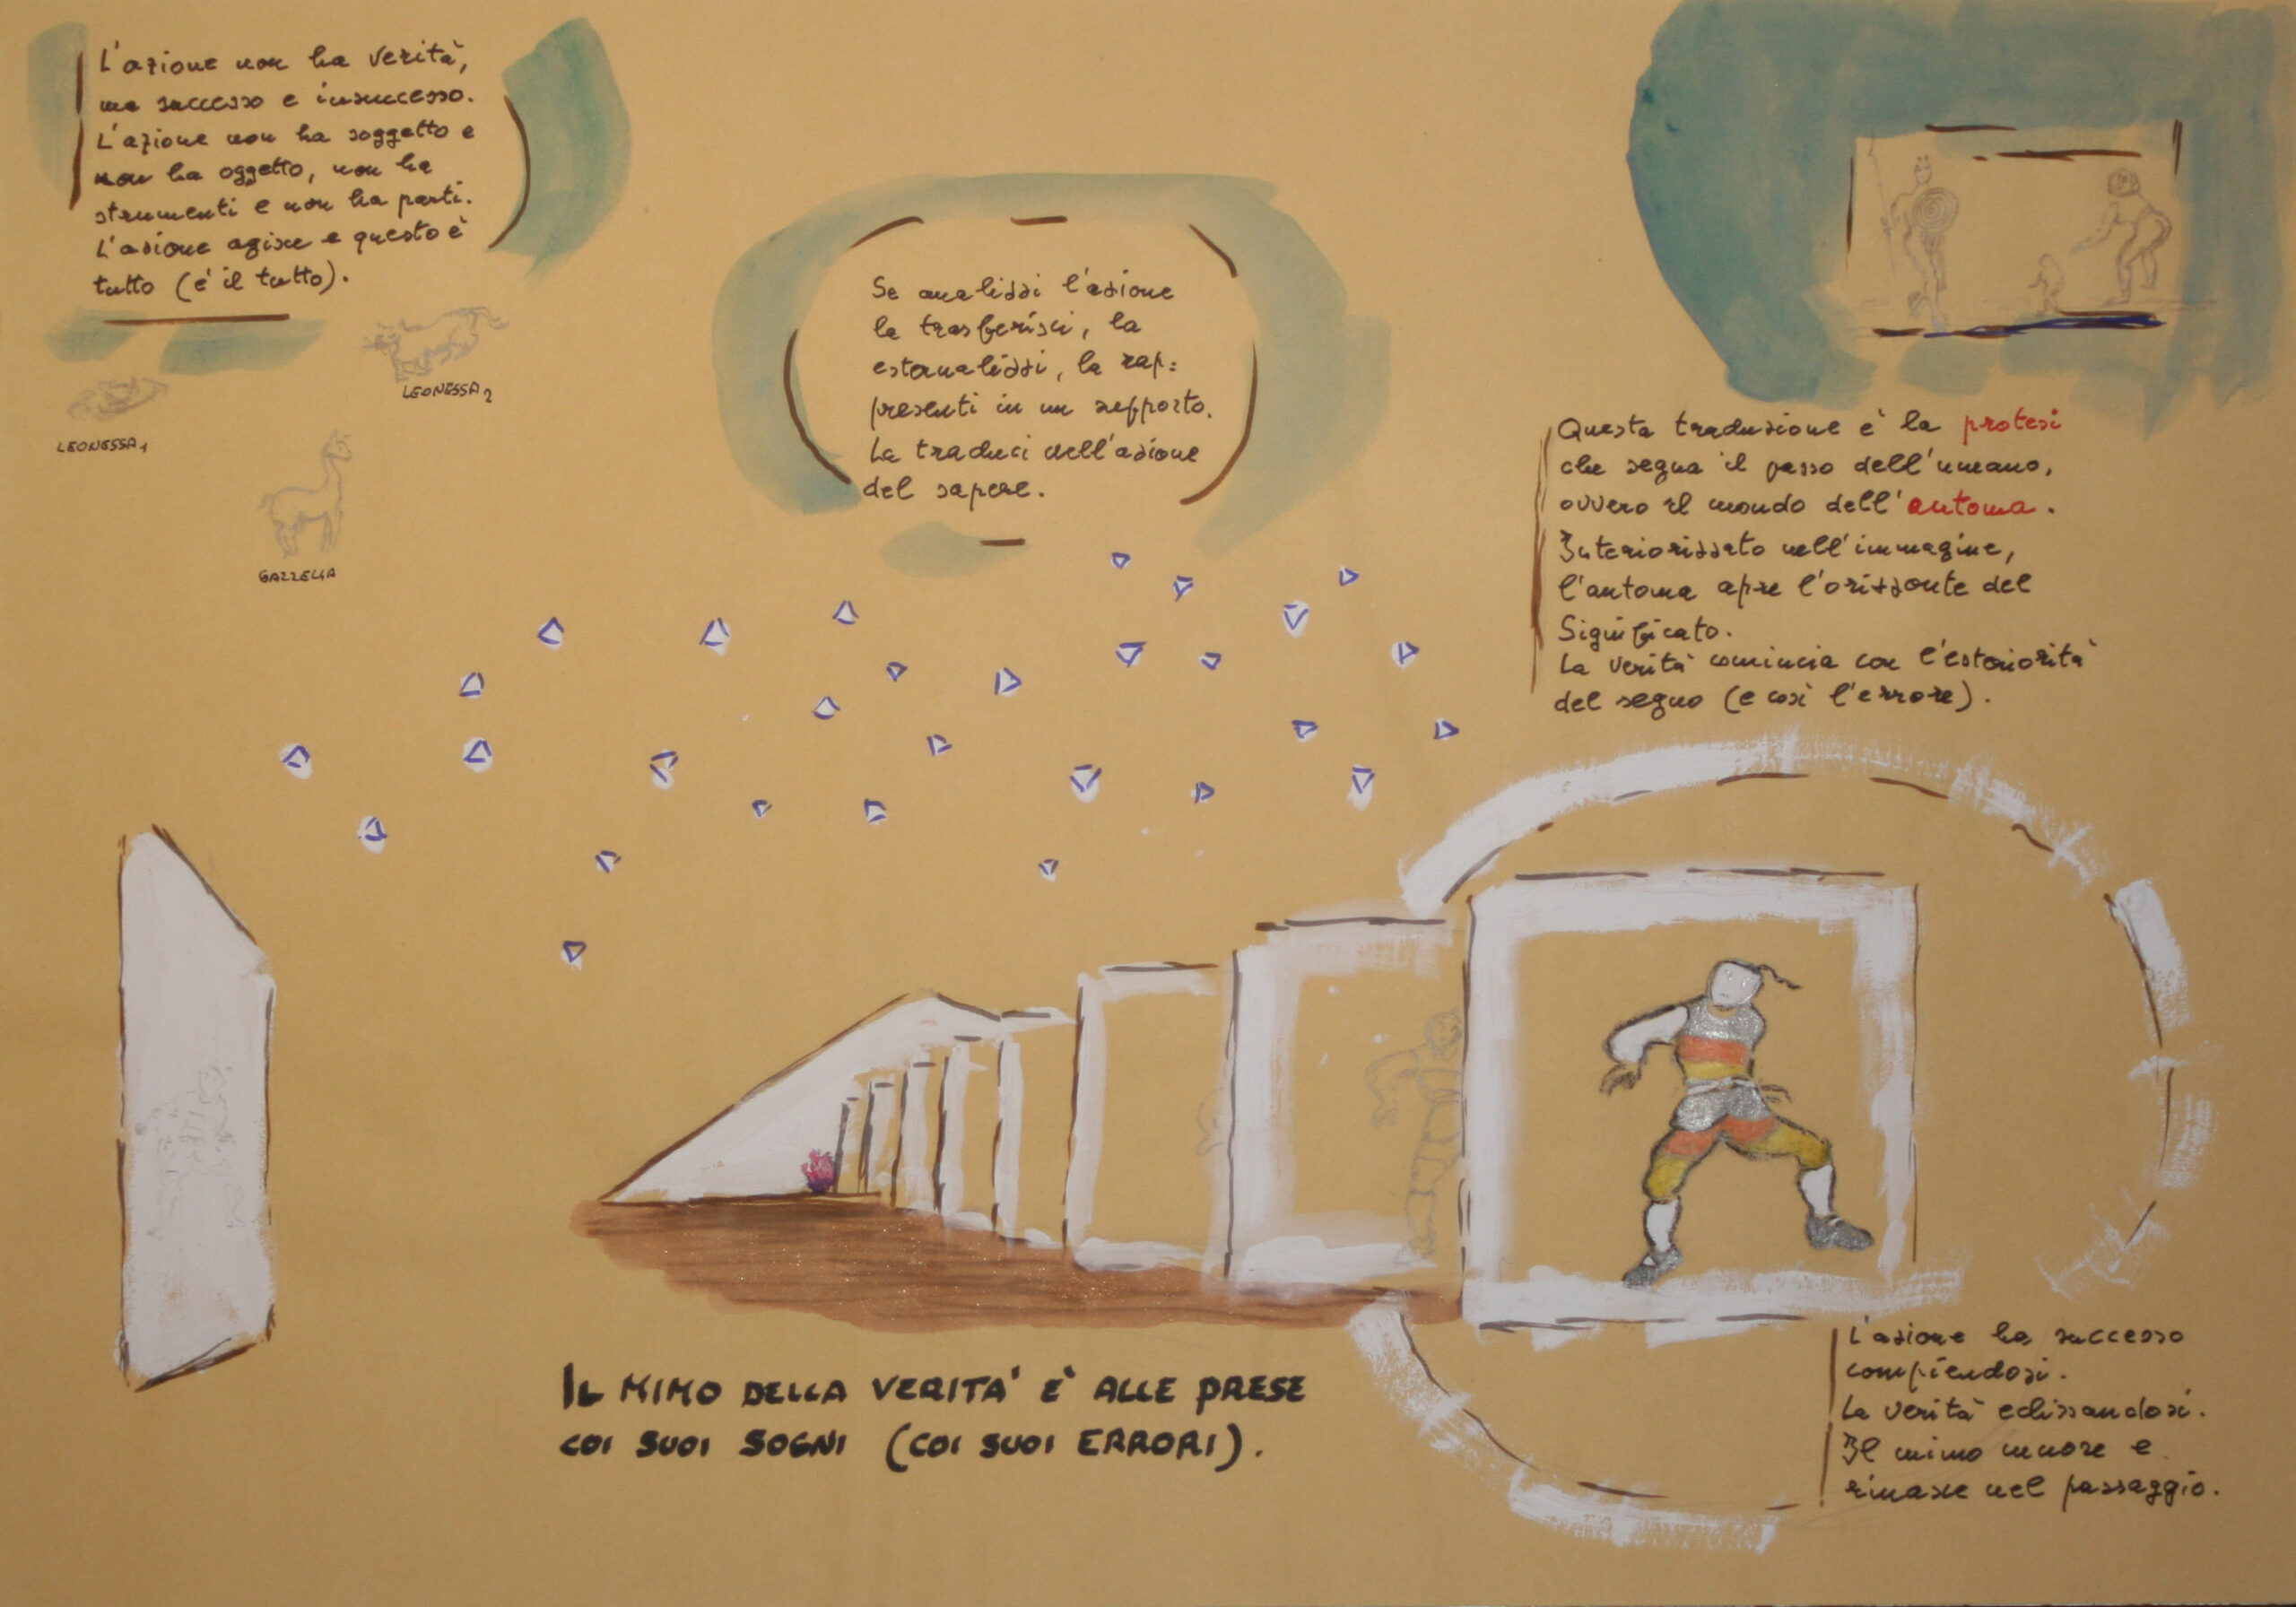 L'azione non ha verità,
ma successo e insuccesso.
L'azione non ha soggetto e
non ha oggetto, non ha
strumenti e non ha parti.
L'azione agisce e questo è
tutto (è il tutto).
LEONESSA 2
LEONESSA 1
GAZZELLA
Se analizzi l'azione
la trasferisci, la
esternalizzi, la rap=
presenti in un supporto.
La traduci nell'azione
del sapere.
Questa traduzione è la protesi
che segna il passo dell'umano,
ovvero il mondo dell'automa.
Interiorizzato nell'immagine,
l'automa apre l'orizzonte del
Significato.
La verità comincia con l'esteriorità
del segno (e così l'errore).
IL MIMO DELLA VERITA' E' ALLE PRESE
COI SUOI SOGNI (COI SUOI ERRORI).
L'azione ha successo
compiendosi.
La verità eclissandosi.
Il mimo muore e
rinasce nel passaggio.